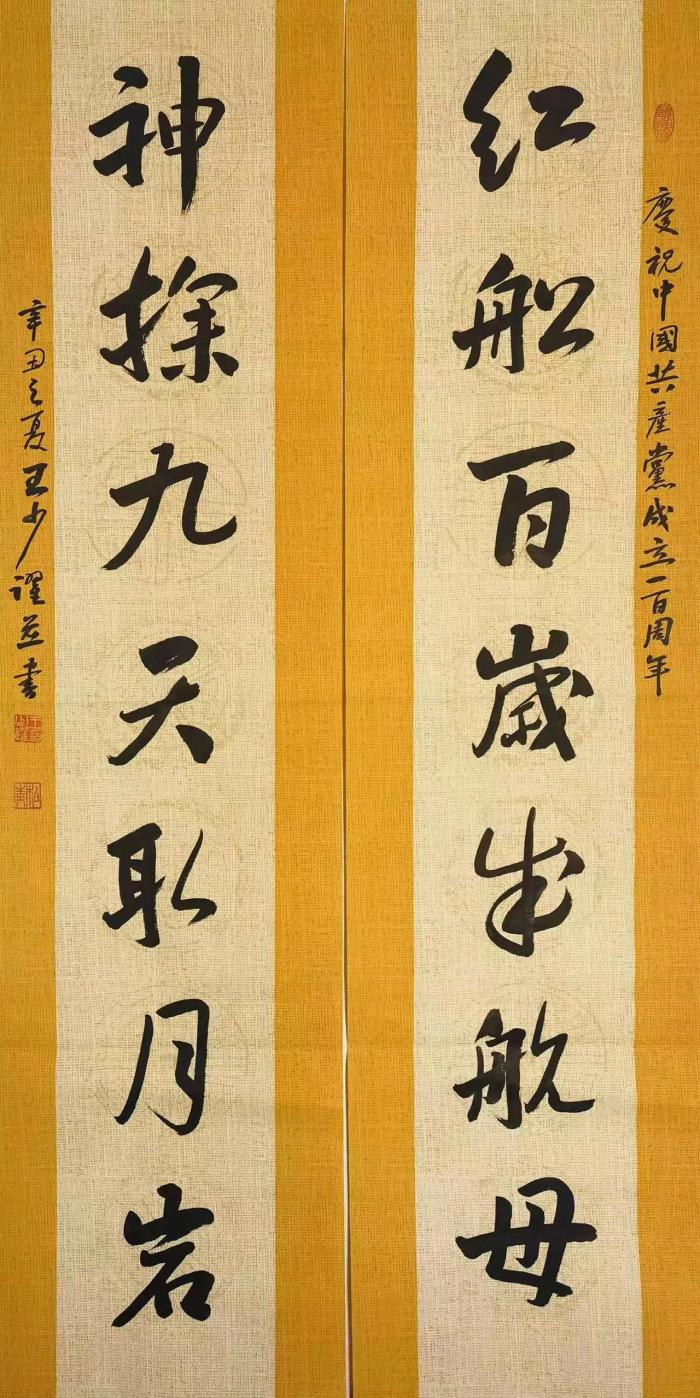 慶祝中國共產黨成立一百周年
红船百歲成航母
神探九天取月岩
辛丑之夏王少谨並書